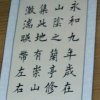 永和九年歲在
山陰之蘭亭修
集此地有崇山
激湍映帶左右